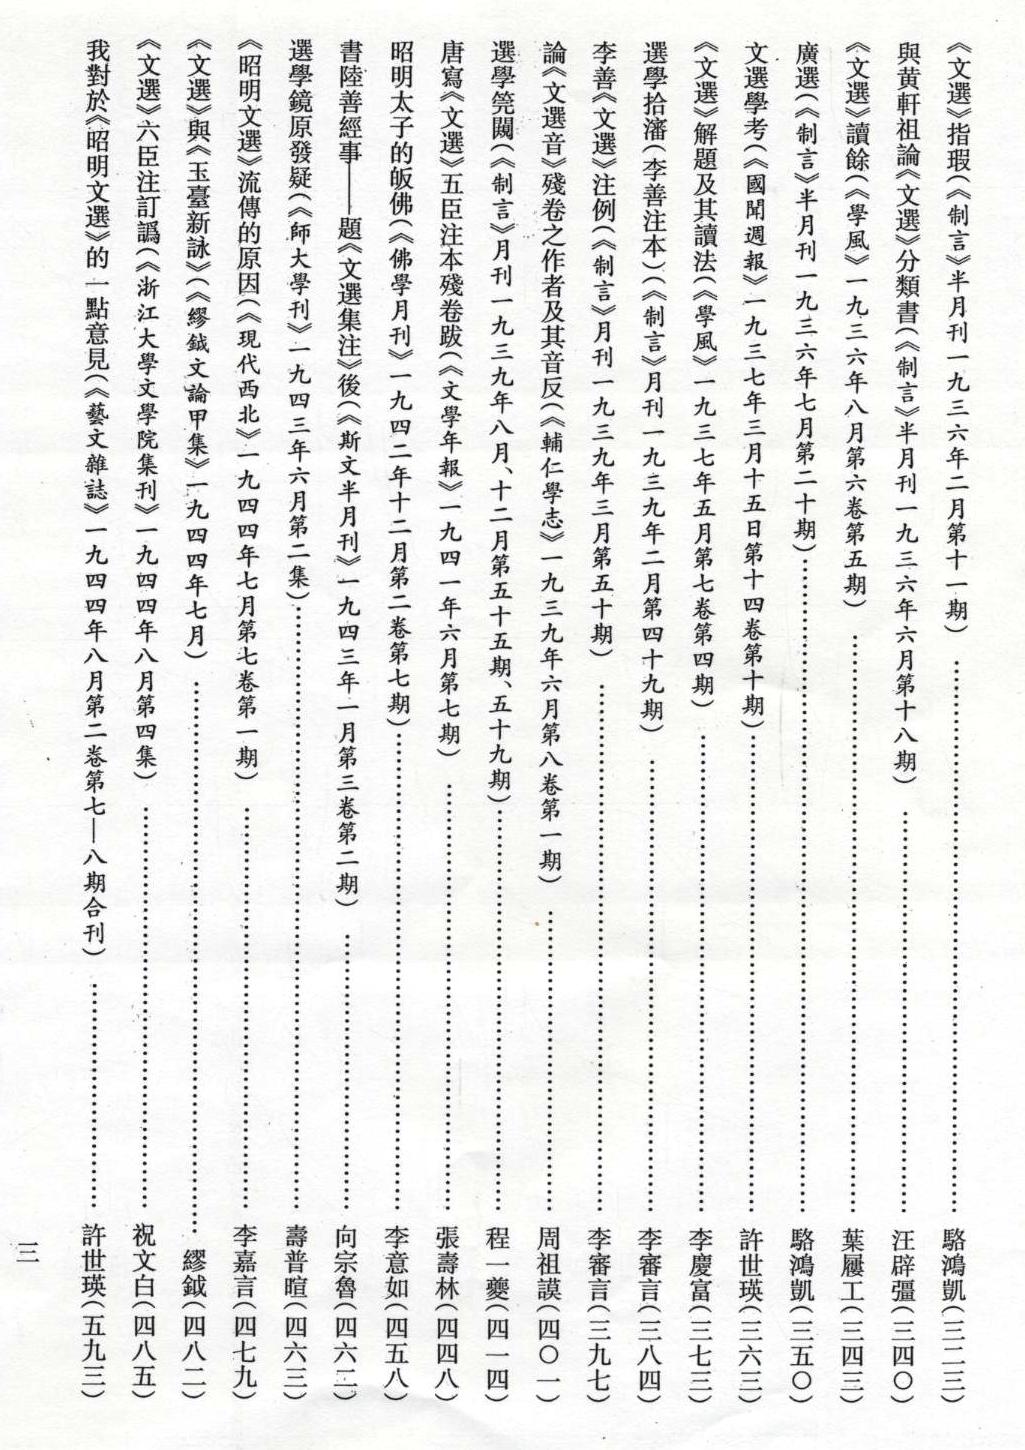 《文選》指瑕(《制言》半月刊一九三六年二月第十一期)……駱鴻凱(三二三)
與黄軒祖論《文選》分類書(《制言》半月刊一九三六年六月第十八期)……汪辟彊(三四〇)
《文選》讀餘(《學風》一九三六年八月第六卷第五期)……葉屨工(三四三)
廣選(《制言》半月刊一九三六年七月第二十期)……駱鴻凱(三五〇)
文選學考(《國聞週報》一九三七年三月十五日第十四卷第十期)……許世瑛(三六三)
《文選》解題及其讀法(《學風》一九三七年五月第七卷第四期)……李慶富(三七三)
選學拾瀋(李善注本)(《制言》月刊一九三九年二月第四十九期)……李審言(三八四)
李善《文選》注例(《制言》月刊一九三九年三月第五十期)……李審言(三九七)
論《文選音》殘卷之作者及其音反(《輔仁學志》一九三九年六月第八卷第一期)……周祖謨(四〇一)
選學筦闚(《制言》月刊一九三九年八月、十二月第五十五期、五十九期)……程一夔(四一四)
唐寫《文選》五臣注本殘卷跋(《文學年報》一九四一年六月第七期)……張壽林(四四八)
昭明太子的皈佛(《佛學月刊》一九四二年十二月第二卷第七期)……李意如(四五八)
書陸善經事——題《文選集注》後(《斯文半月刊》一九四三年一月第三卷第二期)……向宗魯(四六二)
選學鏡原發疑(《師大學刊》一九四三年六月第二集)……壽普暄(四六三)
《昭明文選》流傳的原因(《現代西北》一九四四年七月第七卷第一期)……李嘉言(四七九)
《文選》與《玉臺新詠》(《繆鉞文論甲集》一九四四年七月)……繆鉞(四八二)
《文選》六臣注訂譌(《浙江大學文學院集刊》一九四四年八月第四集)……祝文白(四八五)
我對於《昭明文選》的一點意見(《藝文雜誌》一九四四年八月第二卷第七—八期合刊)……許世瑛(五九三)
三